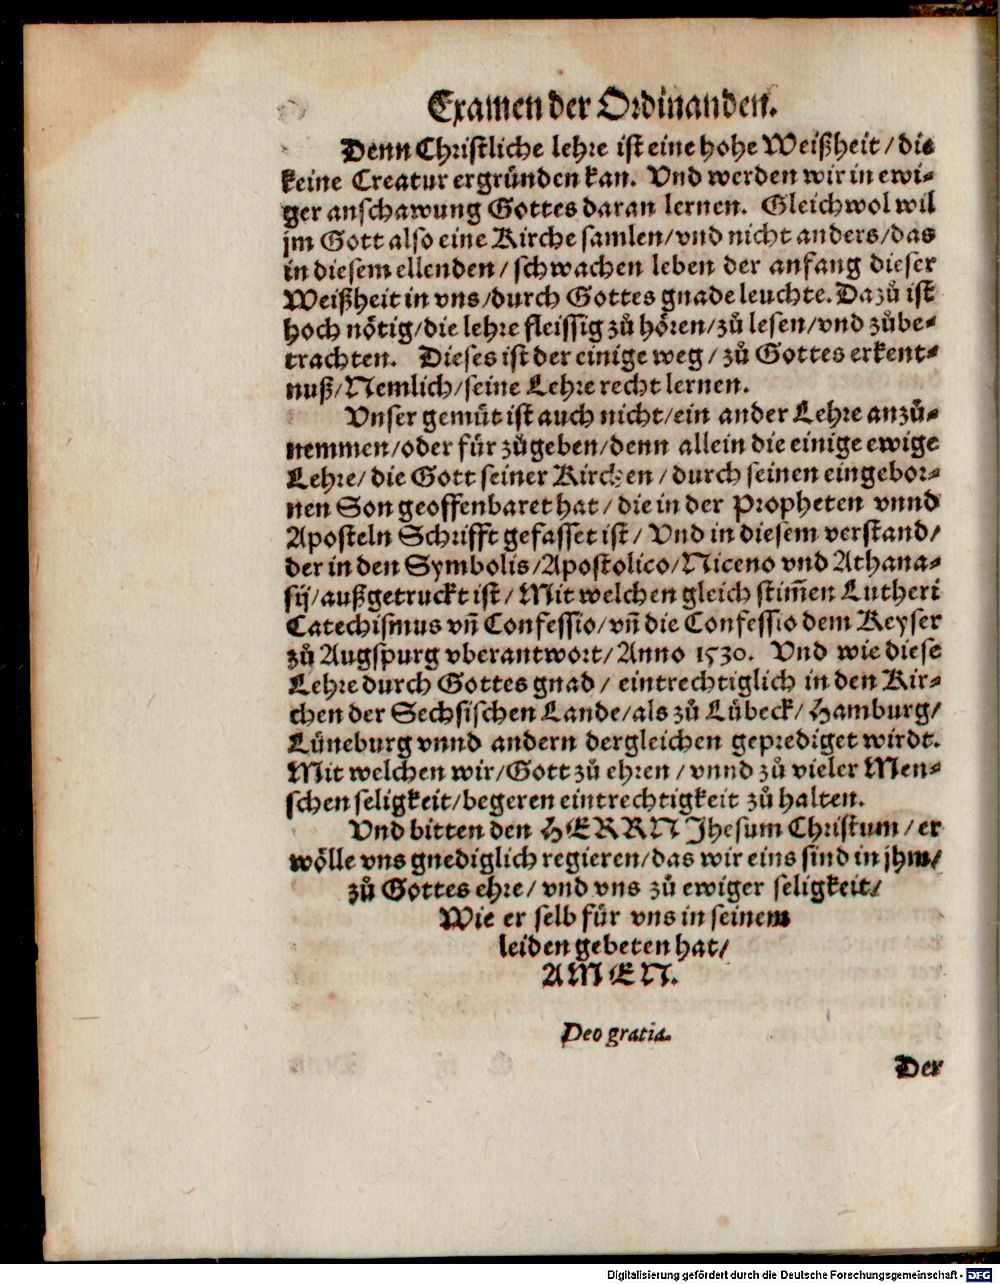 Examen der Ordinanden.
Denn Christliche lehre ist eine hohe Weißheit / die
keine Creatur ergründen kan. Vnd werden wir in ewi-
ger anschawung Gottes daran lernen. Gleichwol wil
jm Gott also eine Kirche samlen / vnd nicht anders / das
in diesem ellenden / schwachen leben der anfang dieser
Weißheit in vns / durch Gottes gnade leuchte. Dazů ist
hoch nötig / die lehre fleissig zů hören / zů lesen / vnd zůbe-
trachten. Dieses ist der einige weg / zů Gottes erkent-
nuß / Nemlich / seine Lehre recht lernen.
Vnser gemüt ist auch nicht / ein ander Lehre anzů-
nemmen / oder für zůgeben / denn allein die einige ewige
Lehre / die Gott seiner Kirchen / durch seinen eingebor-
nen Son geoffenbaret hat / die in der Propheten vnnd
Aposteln Schrifft gefasset ist / Vnd in diesem verstand /
der in den Symbolis / Apostolico / Niceno vnd Athana-
sij / außgetruckt ist / Mit welchen gleich stim̄en Lutheri
Catechismus vn̄ Confessio / vn̄ die Confessio dem Keyser
zů Augspurg vberantwort / Anno 1530. Vnd wie diese
Lehre durch Gottes gnad / eintrechtiglich in den Kir-
chen der Sechsischen Lande / als zů Lübeck / Hamburg /
Lüneburg vnnd andern dergleichen geprediget wirdt.
Mit welchen wir / Gott zů ehren / vnnd zů vieler Men-
schen seligkeit / begeren eintrechtigkeit zů halten.
Vnd bitten den HERRN Jhesum Christum / er
wölle vns gnediglich regieren / das wir eins sind in jhm /
zů Gottes ehre / vnd vns zů ewiger seligkeit /
Wie er selb für vns in seinem
leiden gebeten hat /
AMEN.
Deo gratia.
Der
Digitalisierung gefördert durch die Deutsche Forschungsgemeinschaft - DFG